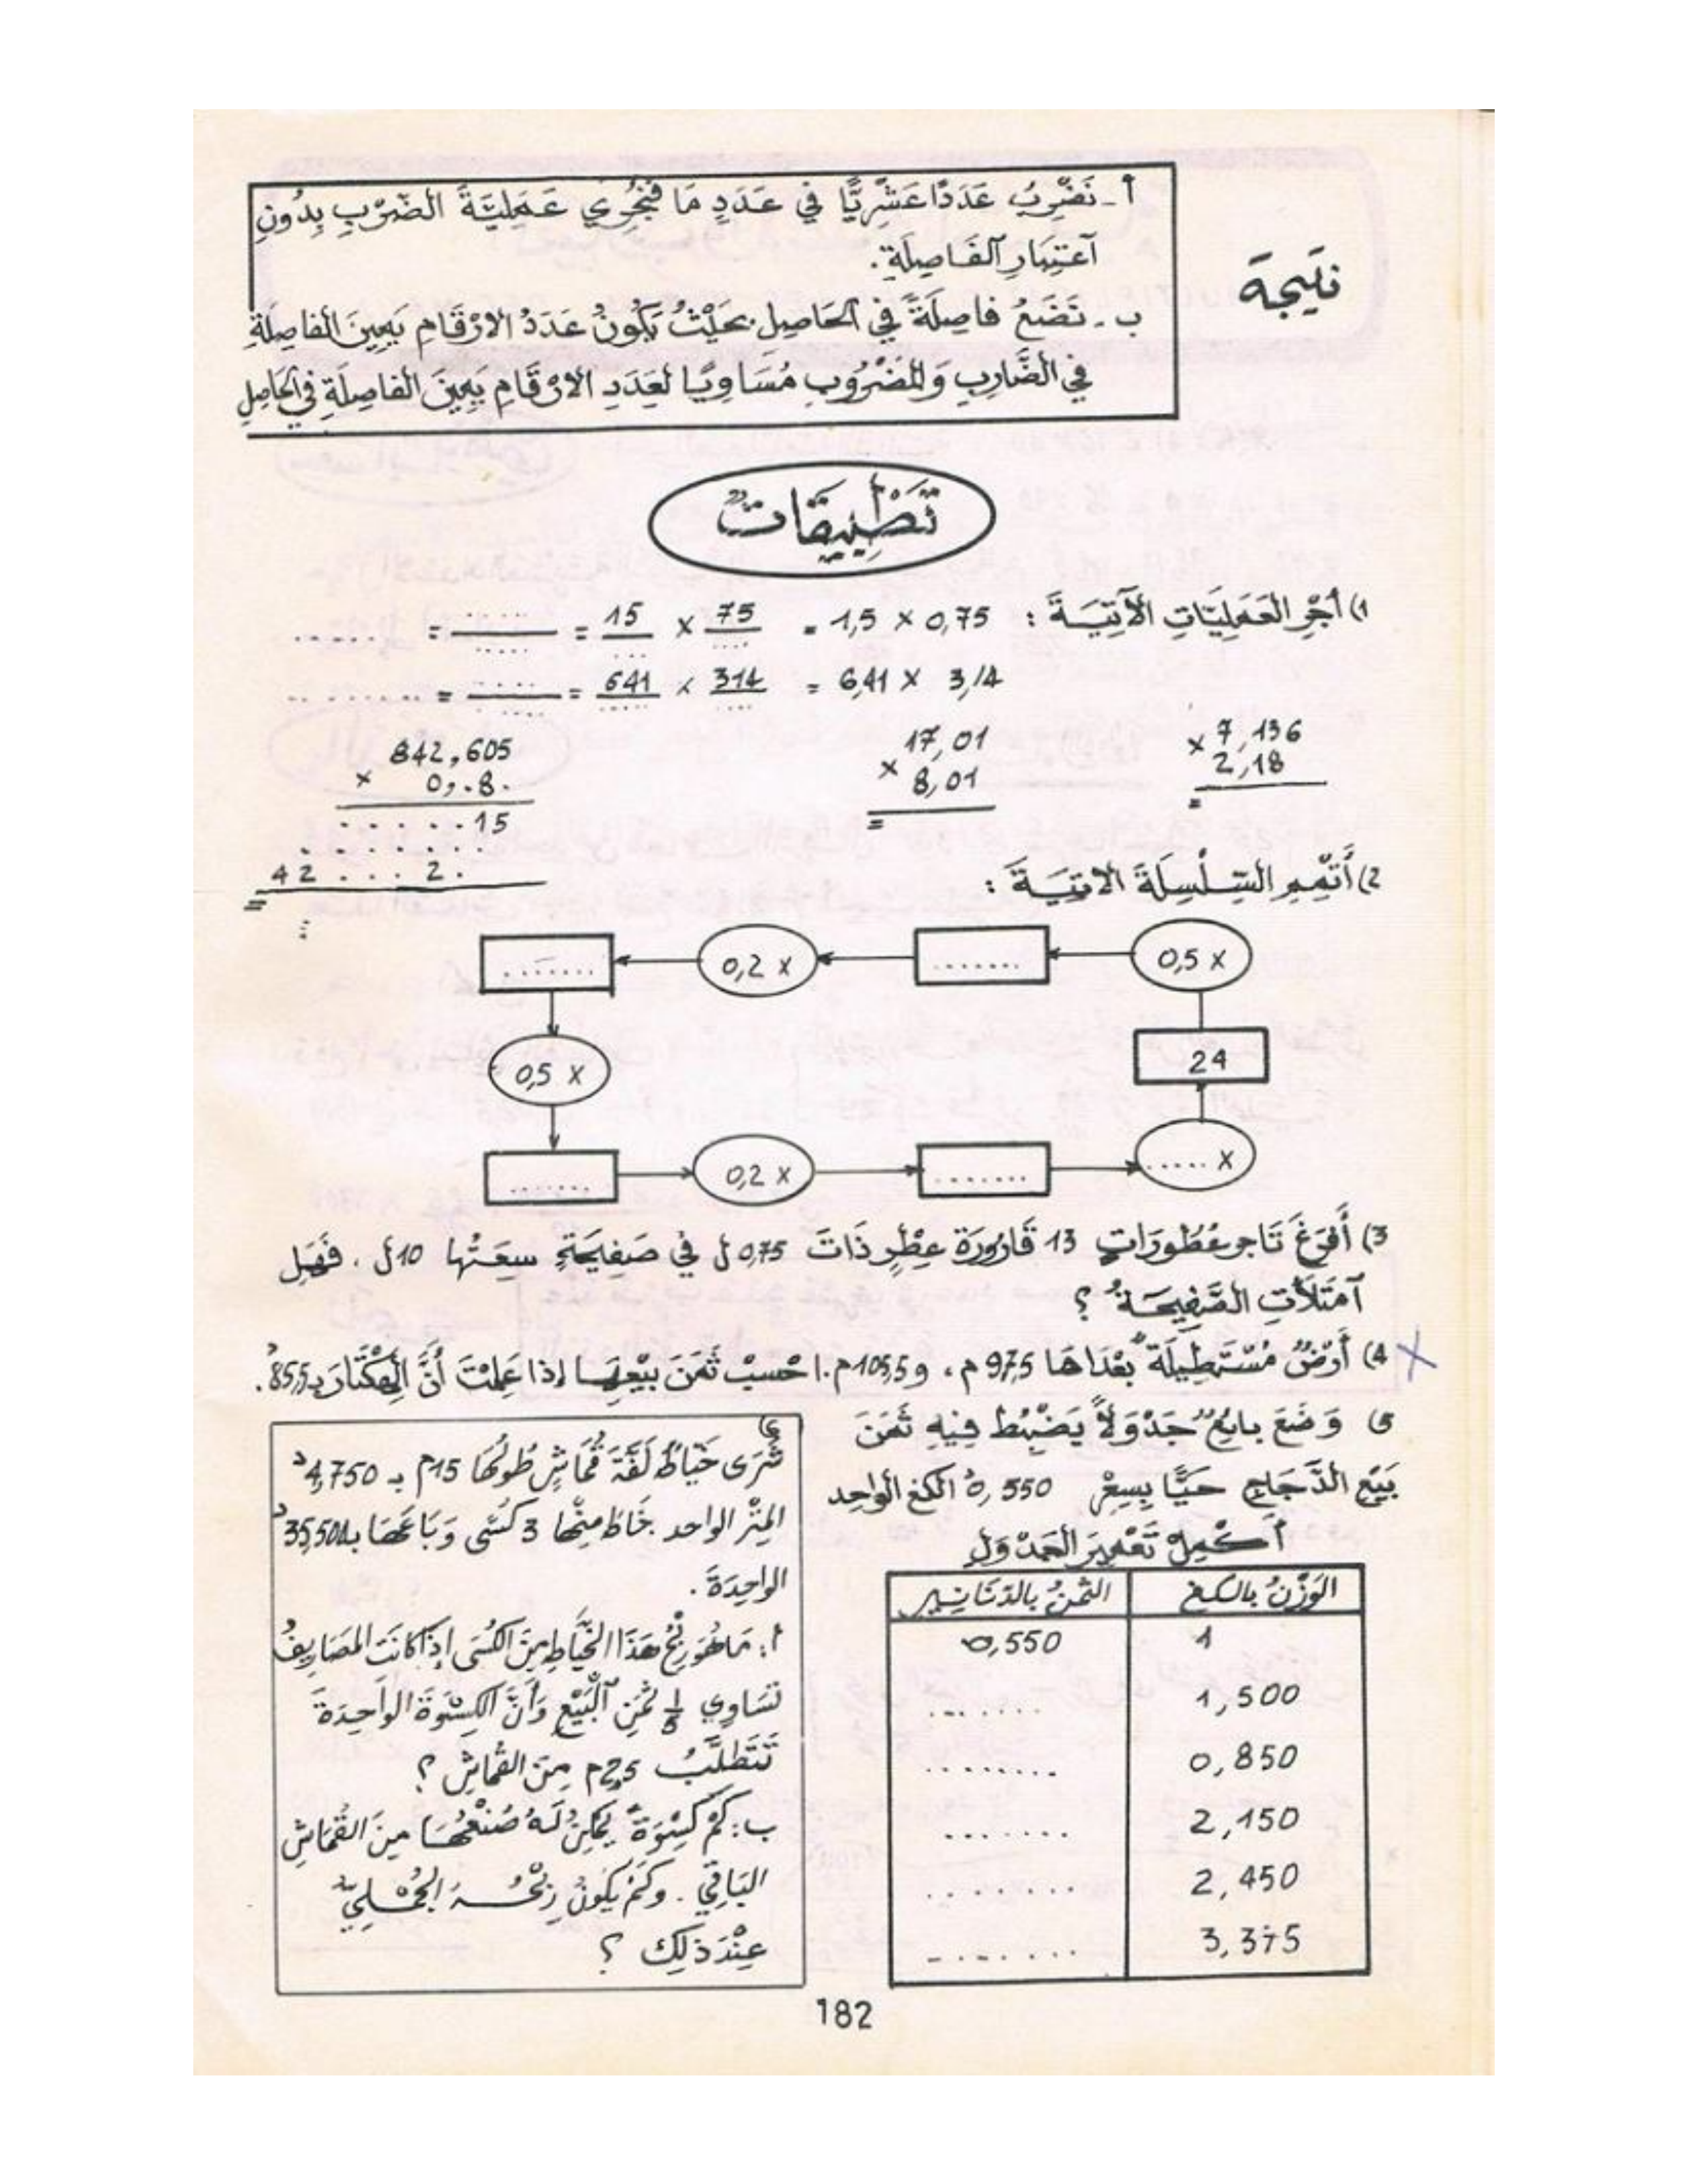 نتيجة
أ- نَضْرِبُ عَدَدًا عَشْرِيًّا في عَدَدٍ مَا فَنُجْرِي عَمَلِيَّةَ الضَّرْبِ بِدُونِ
آعتِبَارِ آلفَاصِلَةِ.
ب- نَضَعُ فاصِلَةً في الحَاصِلِ بحَيْثُ يَكُونُ عَدَدُ الارْقَامِ يَمِينَ الفاصِلَةِ
في الضَّارِبِ وَالمَضْرُوبِ مُسَاوِيًا لعَدَدِ الارْقَامِ يَمِينَ الفاصِلَةِ في الحَاصِلِ
تَطْبِيقَاتٌ
1) أَجْرِ العَمَلِيَّاتِ الآتِيَةَ : 1,5 × 0,75 = 75/.... × 15/.... = ....../..... = ......
6,41 × 3,14 = 314/.... × 641/..... = ...../..... = ........
7,136 × 2,18 =
17,01 × 8,01 =
842,605
× 0,.8.
. . . . . 15
. . . . . . .
42 . . . 2 .
=
2) أَتْمِمِ السِّلْسِلَةَ الاتِيَةَ :
0,5 × ....... 0,2 × .......
0,5 × 24
....... 0,2 × ....... ..... ×
3) أَفْرَغَ تَاجِر عُطُورَاتٍ 13 قَارُورَة عِطْرٍ ذَاتَ 0,75 ل في صَفِيحَةٍ سِعَتُها 10 ل . فَهَل
آمْتَلَأَتِ الصَّفِيحَةُ ؟
4) أَرْضٌ مُسْتَطِيلَة بُعْدَاهَا 97,5 م ، و 105,5 م. احْسِبْ ثَمَنَ بَيْعِهَا إذا عَلِمْتَ أَنَّ الهِكْتَارَ بـ 85,5 د.
5) وَضَعَ بائِعٌ جَدْوَلاً يَضْبِطُ فِيهِ ثَمَنَ
بَيْعِ الدَّجَاجِ حَيًّا بِسِعْرِ 0,550 د الكغ الواحِد
أَكْمِلْ تَعْمِيرَ الجَدْوَلِ
الوَزْنُ بالكغ الثَّمَنُ بالدّنَانِير
1 0,550
1,500 .......
0,850 ........
2,150 .......
2,450 ........
3,375 ........
6)
شَرَى خَيَّاطٌ لَفَّةَ قُمَاشٍ طُولُهَا 15م بـ 4,750 د
المِتْرَ الواحد خَاطَ مِنْهَا 3 كُسًى وَبَاعَهَا بـ 35,500 د
الوَاحِدَةَ .
أ : مَا هُوَ رِبْحُ هَذَا الخَيَّاطِ مِنَ الكُسَى إذَا كَانَتِ المَصَارِيفُ
تُسَاوِي 1/5 ثَمَنِ آلْبَيْعِ وَأَنَّ الكِسْوَةَ الوَاحِدَةَ
تَتَطَلَّبُ 2,5م مِنَ القُمَاشِ ؟
ب : كَمْ كِسْوَةً يُمْكِنُ لَهُ صُنْعُهَا مِنَ القُمَاشِ
البَاقِي . وكَمْ يَكُونُ رِبْحُهُ الجُمْلِيّ
عِنْدَ ذلِكَ ؟
182